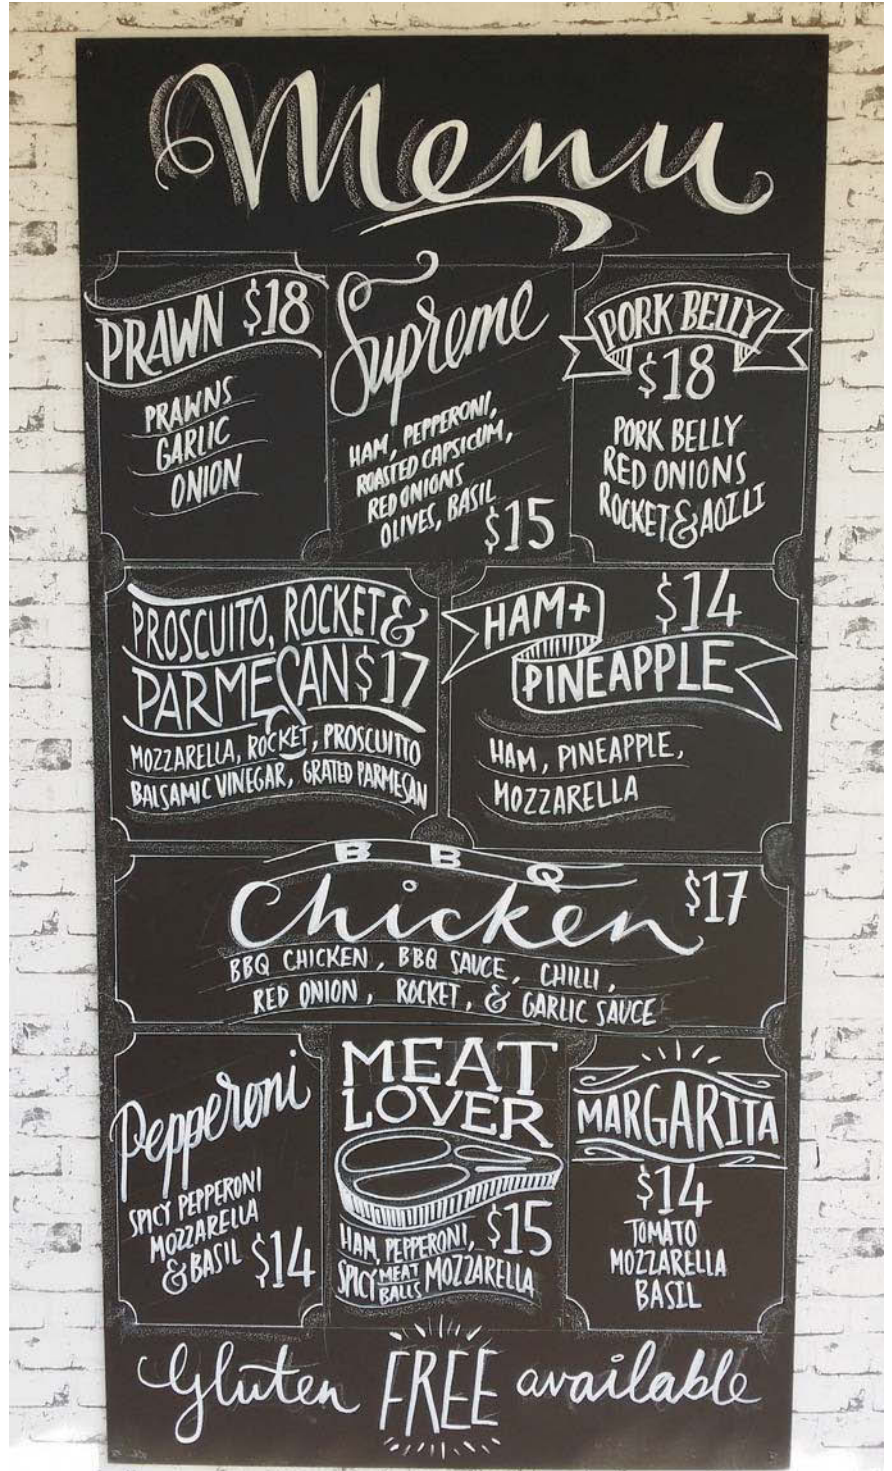 Menu
PRAWN $18
PRAWNS
GARLIC
ONION
Supreme
HAM, PEPPERONI,
ROASTED CAPSICUM,
RED ONIONS
OLIVES, BASIL
$15
PORK BELLY
$18
PORK BELLY
RED ONIONS
ROCKET & AOILI
PROSCUITO, ROCKET &
PARMESAN $17
MOZZARELLA, ROCKET, PROSCUITTO
BALSAMIC VINEGAR, GRATED PARMESAN
HAM+ $14
PINEAPPLE
HAM, PINEAPPLE,
MOZZARELLA
BBQ
Chicken $17
BBQ CHICKEN, BBQ SAUCE, CHILLI,
RED ONION, ROCKET, & GARLIC SAUCE
Pepperoni
SPICY PEPPERONI
MOZZARELLA
& BASIL $14
MEAT
LOVER
HAM, PEPPERONI, $15
SPICY MEAT BALLS MOZZARELLA
MARGARITA
$14
TOMATO
MOZZARELLA
BASIL
Gluten FREE available